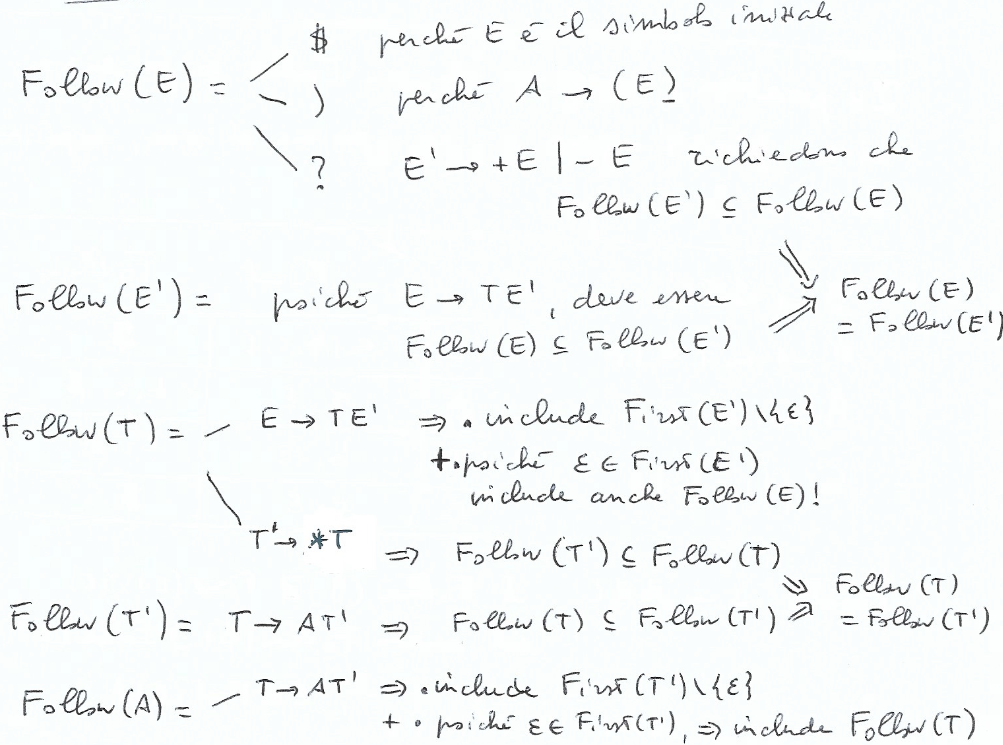 $ perché E è il simbolo iniziale
Follow(E) =
) perché A → (E)
? E' → +E | -E richiedono che
Follow(E') ⊆ Follow(E)
Follow(E') = poiché E → TE', deve essere
Follow(E) ⊆ Follow(E')
Follow(E)
= Follow(E')
Follow(T) = E → TE' ⇒ • include First(E')\{ε}
+ • poiché ε ∈ First(E')
include anche Follow(E)!
T' → *T ⇒ Follow(T') ⊆ Follow(T)
Follow(T)
= Follow(T')
Follow(T') = T → AT' ⇒ Follow(T) ⊆ Follow(T')
Follow(A) = T → AT' ⇒ • include First(T')\{ε}
+ • poiché ε ∈ First(T'), ⇒ include Follow(T)